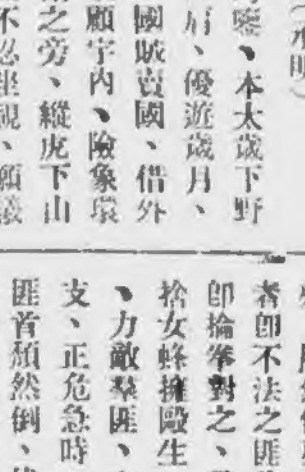 (永明)
鑒、本大歲下野
肩、優遊歲月、
國賊賣國、借外
顧宇內、險象環
之旁、縱虎下山
不忍坐視、願
者卽不法之匪
卽掄拳對之、
捨女蜂擁毆生
、力敵羣匪、
支、正危急時
匪首頹然倒、